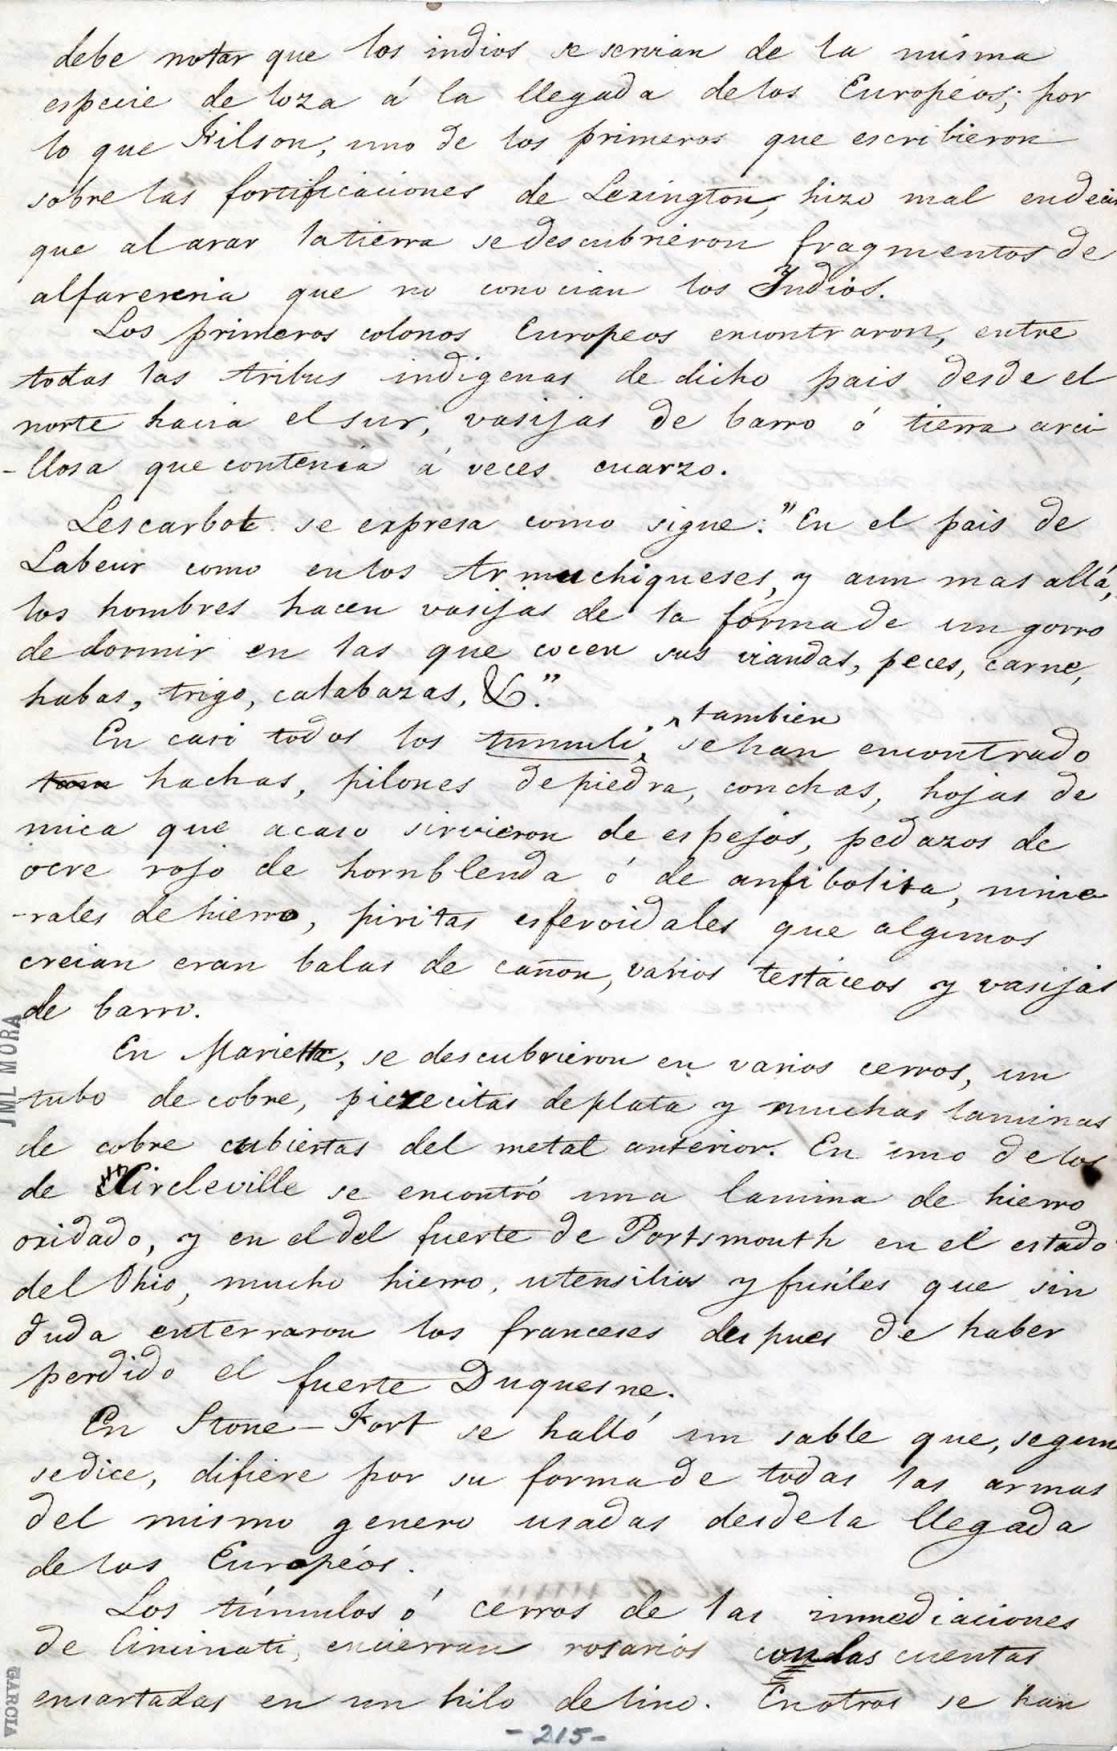 debe notar que los indios se servian de la misma
especie de loza á la llegada de los Européos; por
lo que Filson, uno de los primeros que escribieron
sobre las fortificaciones de Lexington, hizo mal en decir
que al arar la tierra se descubrieron fragmentos de
alfareria que no conocian los Indios.
Los primeros colonos Europeos encontraron, entre
todas las tribus indigenas de dicho pais desde el
norte hacia el sur, vasijas de barro ó tierra arci
-llosa que contenia á veces cuarzo.
Lescarbot se expresa como sigue: "En el pais de
Labeur como en los Armuchiqueses, y aun mas allá,
los hombres hacen vasijas de la forma de un gorro
de dormir en las que cocen sus viandas, peces, carne,
habas, trigo, calabazas, &."
tambien
En casi todos los tumuli, se han encontrado
tam hachas, pilones de piedra, conchas, hojas de
mica que acaso sirvieron de espejos, pedazos de
ocre rojo de hornblenda ó de anfibolita, mine
-rales de hierro, piritas esferoidales que algunos
creian eran balas de cañon, varios testáceos y vasijas
de barro.
En Marietta, se descubrieron en varios cerros, un
tubo de cobre, piezecitas de plata y muchas laminas
de cobre cubiertas del metal anterior. En uno de los
de Circleville se encontró una lamina de hierro
oxidado, y en el del fuerte de Portsmouth en el estado
del Ohio, mucho hierro, utensilios y fusiles que sin
duda enterraron los franceses despues de haber
perdido el fuerte Duquesne.
En Stone-Fort se halló un sable que, segun
se dice, difiere por su forma de todas las armas
del mismo genero usadas desde la llegada
de los Européos.
Los túmulos ó cerros de las inmediaciones
de Cincinati, encierran rosarios con las cuentas
ensartadas en un hilo de lino. En otros se han
-215-
JML MORA
GARCIA